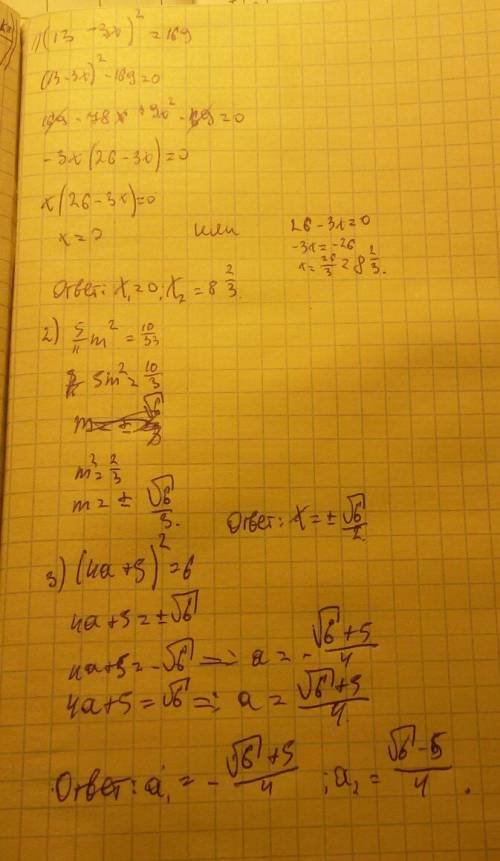 1) (13 - 3x)² = 169
(13 - 3x)² - 169 = 0
169 - 78x + 9x² - 169 = 0
-3x(26 - 3x) = 0
x(26 - 3x) = 0
x = 0 или 26 - 3x = 0
-3x = -26
x = 26/3 = 8 2/3.
Ответ: x₁ = 0; x₂ = 8 2/3.
2) 5/11 m² = 10/33
5m² = 10/3
m = ± √6/3
m² = 2/3
m = ± √6/3.
Ответ: x = ± √6/2.
3) (4a + 5)² = 6
4a + 5 = ±√6
4a + 5 = -√6 => a = - √6 + 5/4
4a + 5 = √6 => a = √6 + 5/4.
Ответ: a₁ = - √6 + 5/4 ; a₂ = √6 - 5/4.